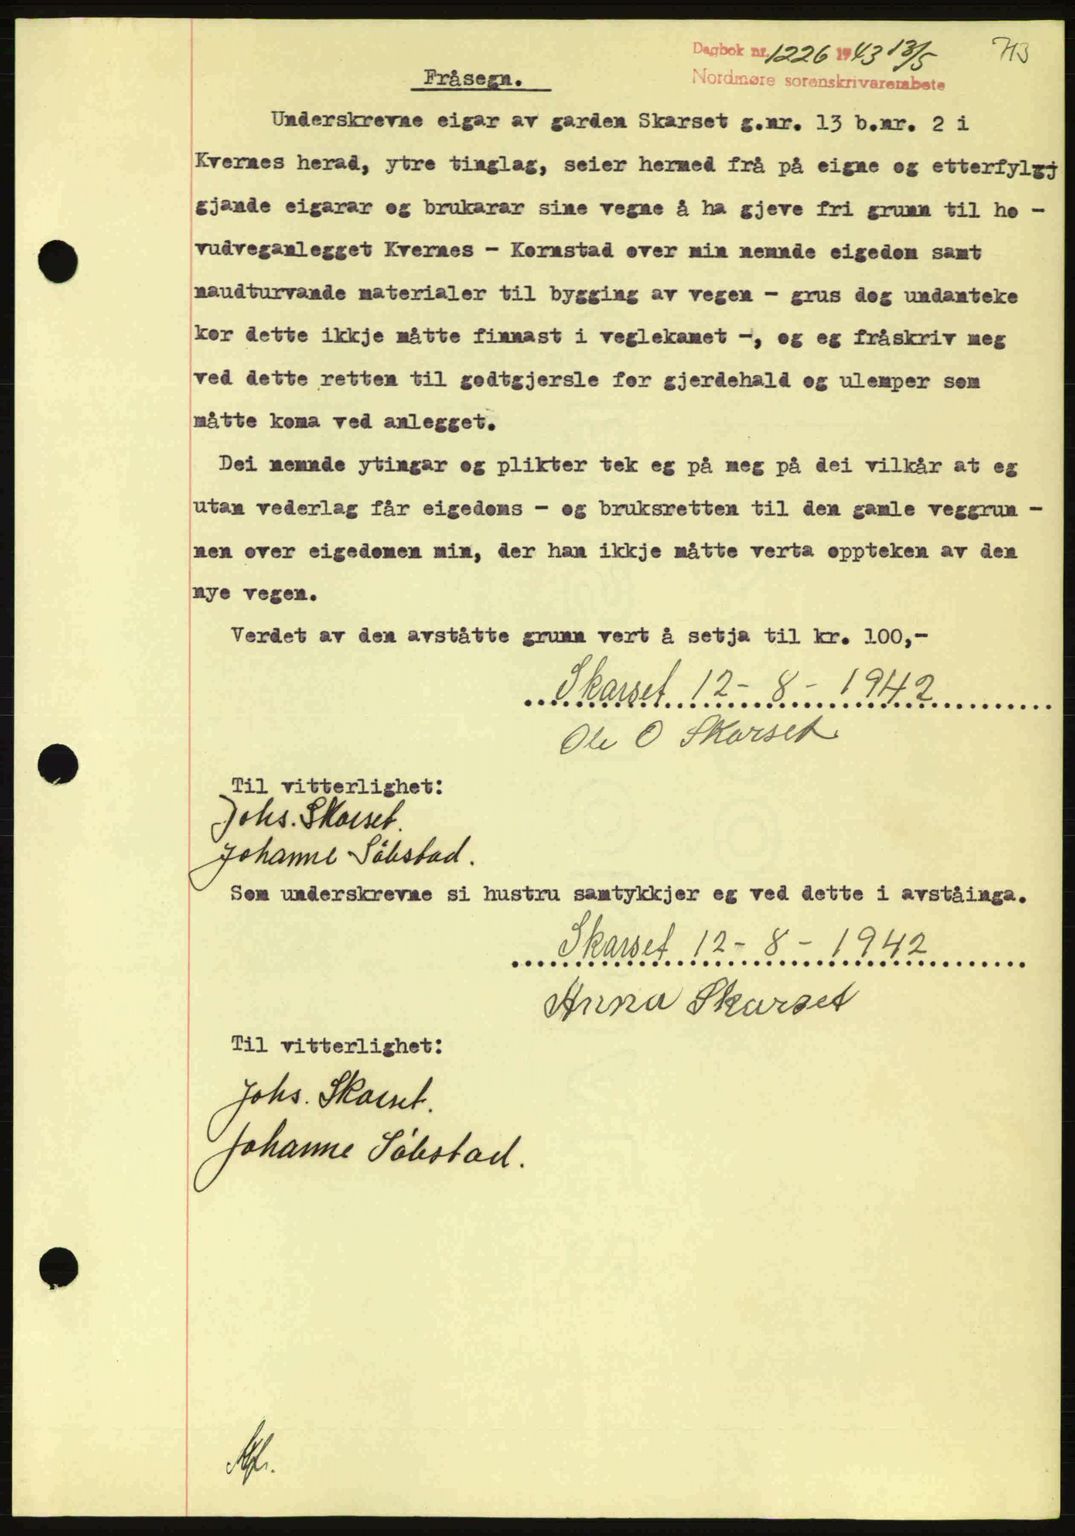 Dagbok nr. 1226 1943 13/5 713
Nordmøre sorenskrivarembete
Fråsegn.
Underskrevne eigar av garden Skarset g.nr. 13 b.nr. 2 i
Kvernes herad, ytre tinglag, seier hermed frå på eigne og etterfylgj
gjande eigarar og brukarar sine vegne å ha gjeve fri grunn til ho -
vudveganlegget Kvernes - Kornstad over min nemnde eigedom samt
naudturvande materialer til bygging av vegen - grus dog undanteke
kor dette ikkje måtte finnast i veglekamet -, og eg fråskriv meg
ved dette retten til godtgjersle for gjerdehald og ulemper som
måtte koma ved anlegget.
Dei nemnde ytingar og plikter tek eg på meg på dei vilkår at eg
utan vederlag får eigedoms - og bruksretten til den gamle veggrun -
nen over eigedomen min, der han ikkje måtte verta oppteken av den
nye vegen.
Verdet av den avståtte grunn vert å setja til kr. 100,-
Skarset 12 - 8 - 1942
Ole O Skarset
Til vitterlighet:
Johs. Skarset.
Johanne Söbstad.
Som underskrevne si hustru samtykkjer eg ved dette i avståinga.
Skarset 12 - 8 - 1942
Anna Skarset
Til vitterlighet:
Johs. Skarset.
Johanne Söbstad.